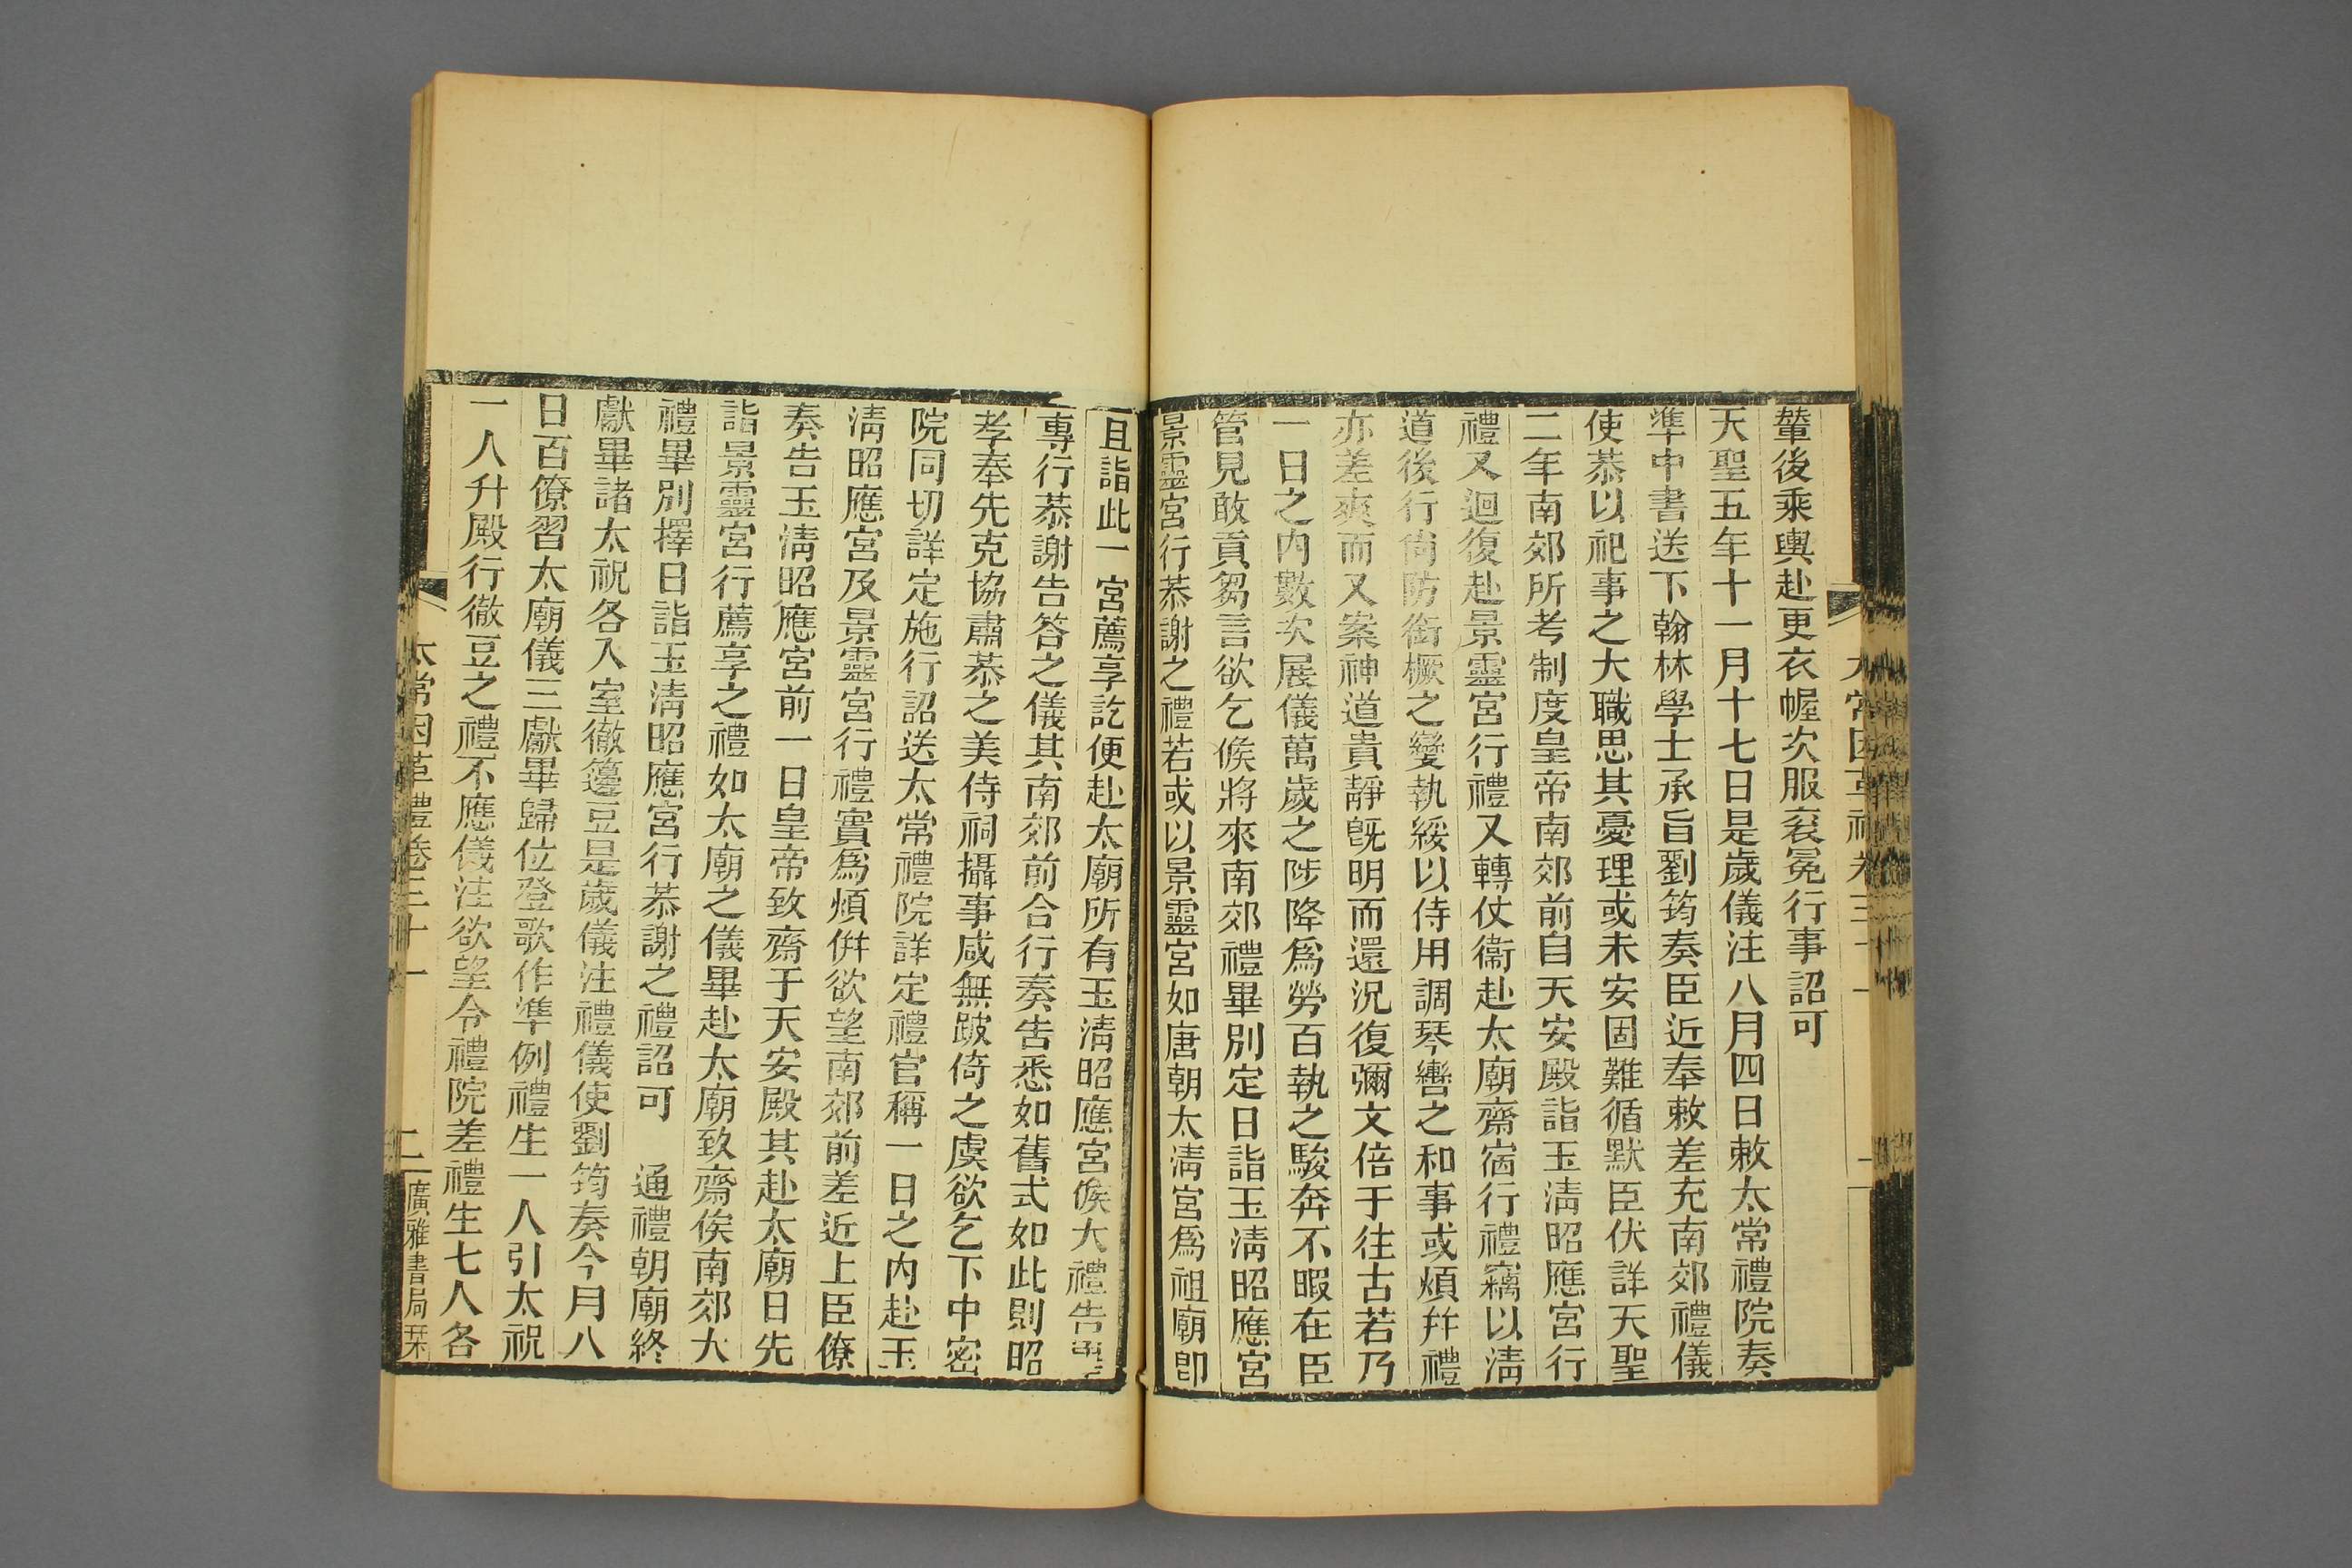 輦後乘輿赴更衣幄次服袞冕行事詔可
天聖五年十一月十七日是歲儀注八月四日敕太常禮院奏
準中書送下翰林學士承旨劉筠奏臣近奉敕差充南郊禮儀
使恭以祀事之大職思其憂理或未安固難循默臣伏詳天聖
二年南郊所考制度皇帝南郊前自天安殿詣玉淸昭應宮行
禮又迴復赴景靈宮行禮又轉仗衞赴太廟齋宿行禮竊以淸
道後行尙防銜橛之變執綏以侍用調琴轡之和事或煩幷禮
亦差爽而又案神道貴靜旣明而還況復彌文倍于往古若乃
一日之內數次展儀萬歲之陟降爲勞百執之駿奔不暇在臣
管見敢貢芻言欲乞候將來南郊禮畢別定日詣玉淸昭應宮
景靈宮行恭謝之禮若或以景靈宮如唐朝太淸宮爲祖廟卽
且詣此一宮薦享訖便赴太廟所有玉淸昭應宮候大禮告
專行恭謝告答之儀其南郊前合行奏告悉如舊式如此則昭
孝奉先克協肅恭之美侍祠攝事咸無跛倚之虞欲乞下中密
院同切詳定施行詔送太常禮院詳定禮官稱一日之內赴玉
淸昭應宮及景靈宮行禮實爲煩併欲望南郊前差近上臣僚
奏告玉淸昭應宮前一日皇帝致齋于天安殿其赴太廟日先
詣景靈宮行薦享之禮如太廟之儀畢赴太廟致齋俟南郊大
禮畢別擇日詣玉淸昭應宮行恭謝之禮詔可　通禮朝廟終
獻畢諸太祝各入室徹籩豆是歲儀注禮儀使劉筠奏今月八
日百僚習太廟儀三獻畢歸位登歌作準例禮生一人引太祝
一人升殿行徹豆之禮不應儀注欲望令禮院差禮生七人各
太常因革禮卷三十一　二　廣雅書局栞